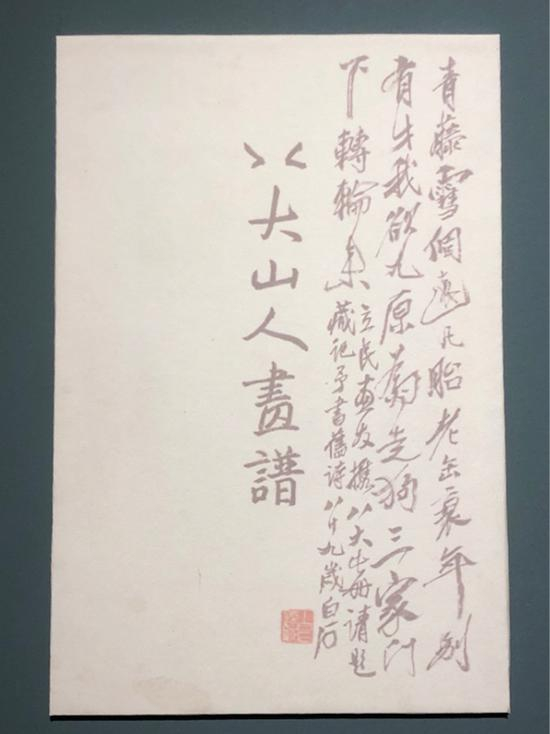 青藤雪個遠凡胎老缶衰年別
有才我欲九原爲走狗三家門
下轉輪來
立民畫友攜八大山册請題
藏記予書舊詩八十九歲白石
八大山人畫譜